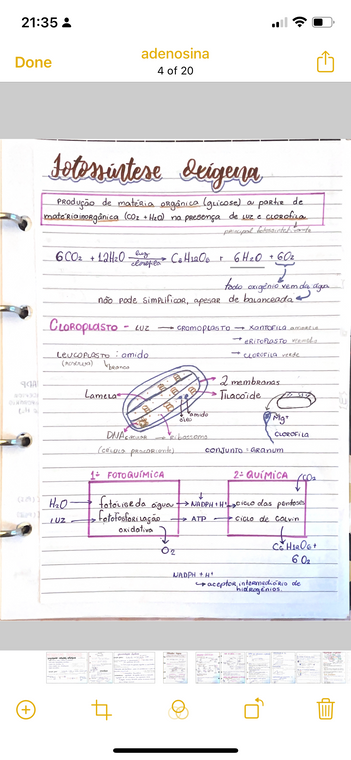 21:35
Done
adenosina
4 of 20
Fotossíntese Oxígena
PRODUÇÃO DE matéria orgânica (glicose) a partir de
matéria inorgânica (CO2 + H2O) na presença de LUZ e CLOROFILA.
6CO2 + 12H2O luz clorofila C6H12O6 + 6H2O + 6O2
todo oxigênio vem da água
não pode simplificar, apesar de balanceada
CLOROPLASTO - LUZ → CROMOPLASTO → XANTOFILA amarela
→ ERITOPLASTO vermelho
LEUCOPLASTO : amido → CLOROFILA verde
(reserva) branco
2 membranas
Lamela Tilacoide
amido
Mg+
CLOROFILA
DNA circular ribossomo
(célula procarionte) CONJUNTO = Granum
1ª FOTOQUÍMICA 2ª QUÍMICA CO2
H2O fotólise da água NADPH + H+ ciclo das pentoses
LUZ fotofosforilação ATP ciclo de Calvin
oxidativa
O2 C6H12O6 +
6O2
NADPH + H+
→ aceptor intermediário de
hidrogênios.